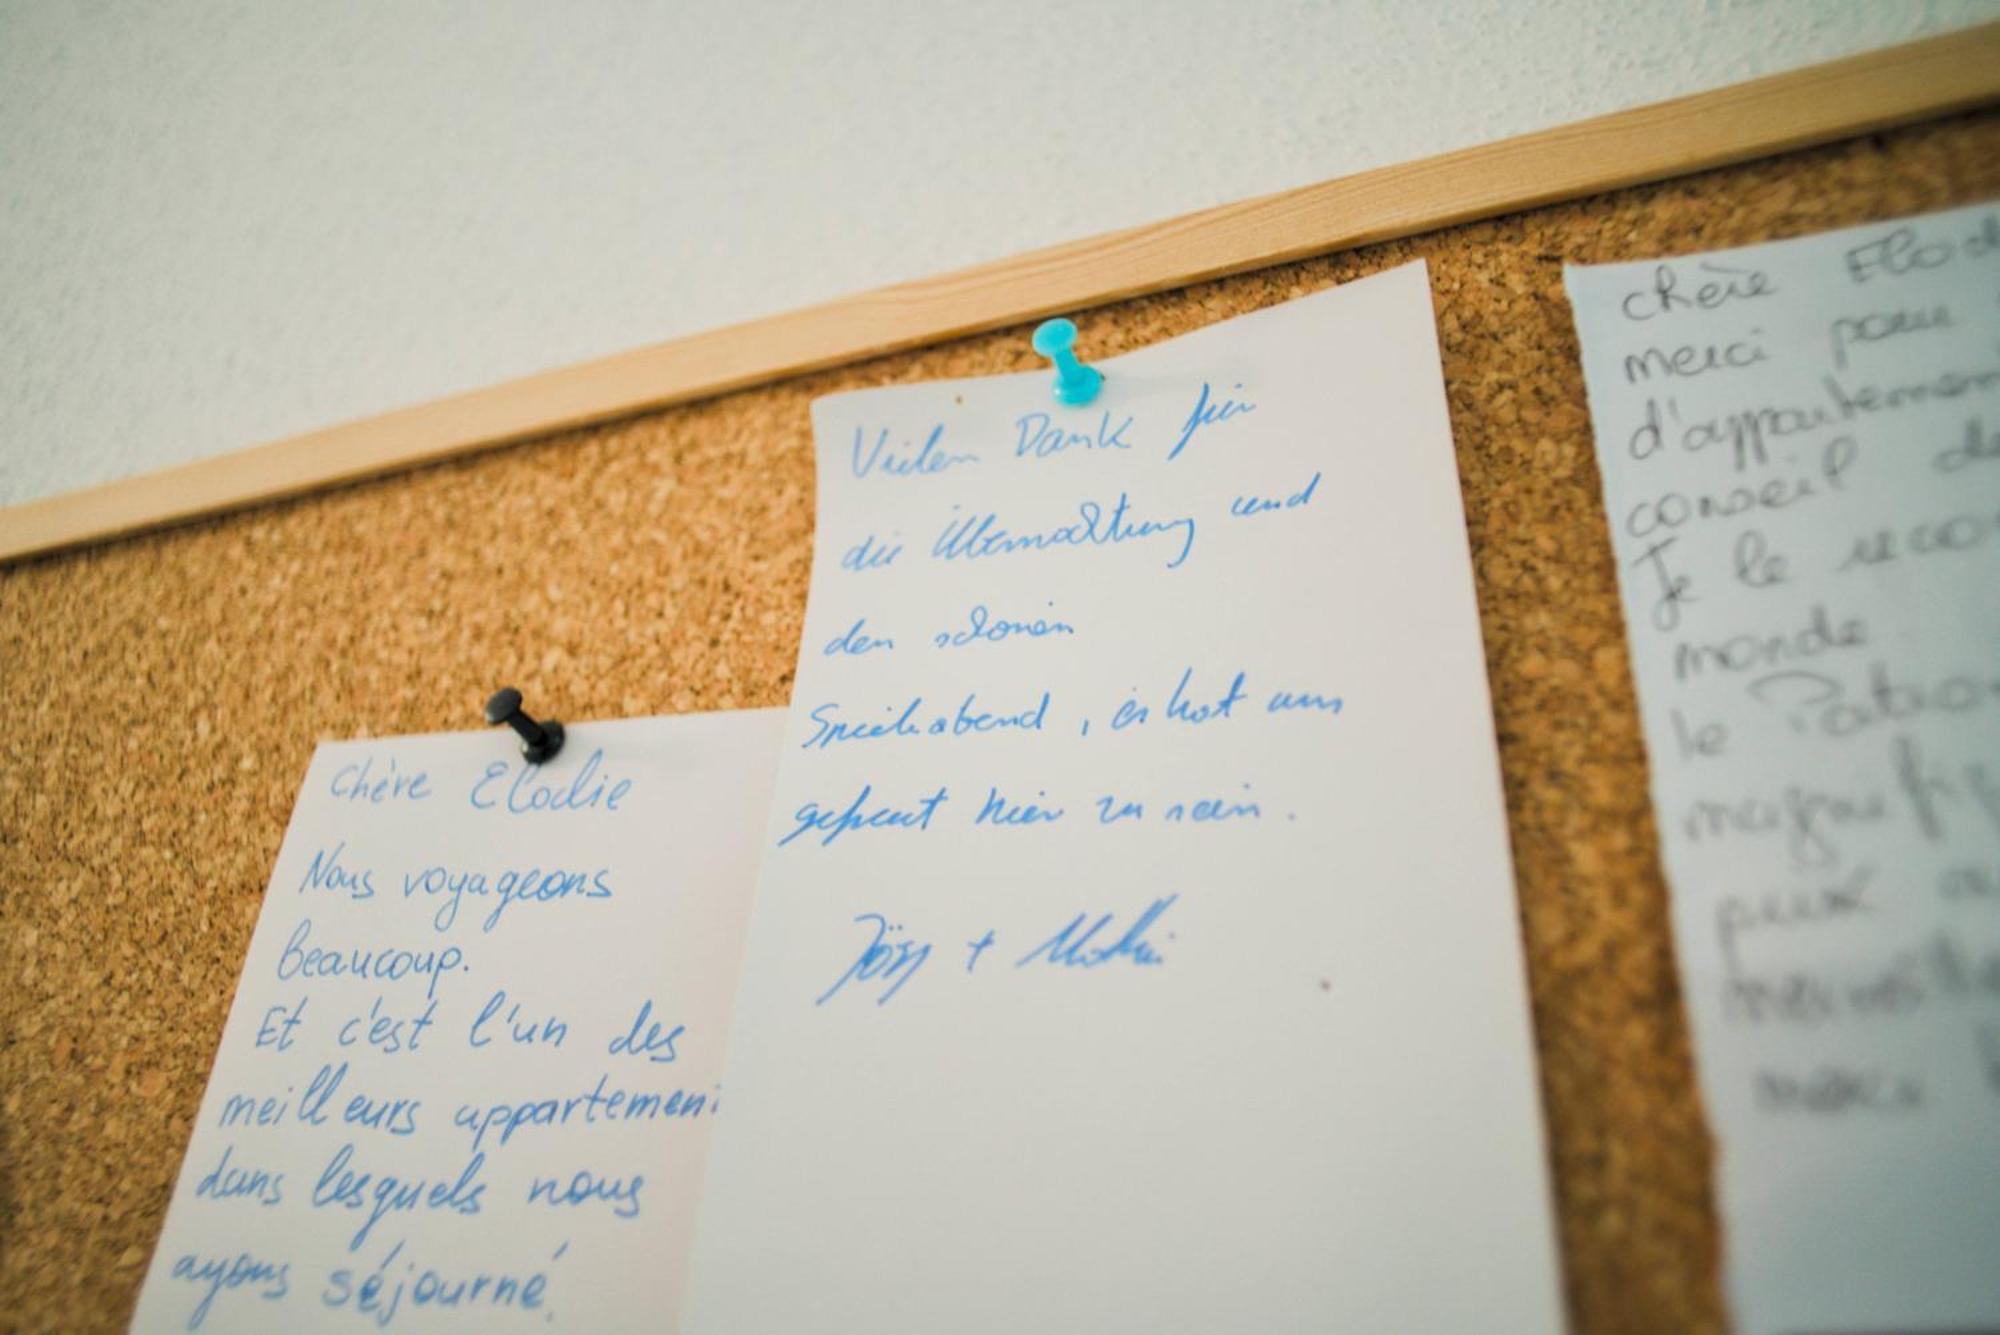 Chère Elodie
Nous voyageons
beaucoup.
Et c'est l'un des
meilleurs appartemen
dans lesquels nous
ayons séjourné.
Vielen Dank für
die Übernachtung und
den schönen
Spieleabend, es hat uns
gefreut hier zu sein.
Jörg +
chère Elod
merci pour
d'appartement
conseil de
Je le reco
monde
le Patro
magnifi
pour
merveille
merci